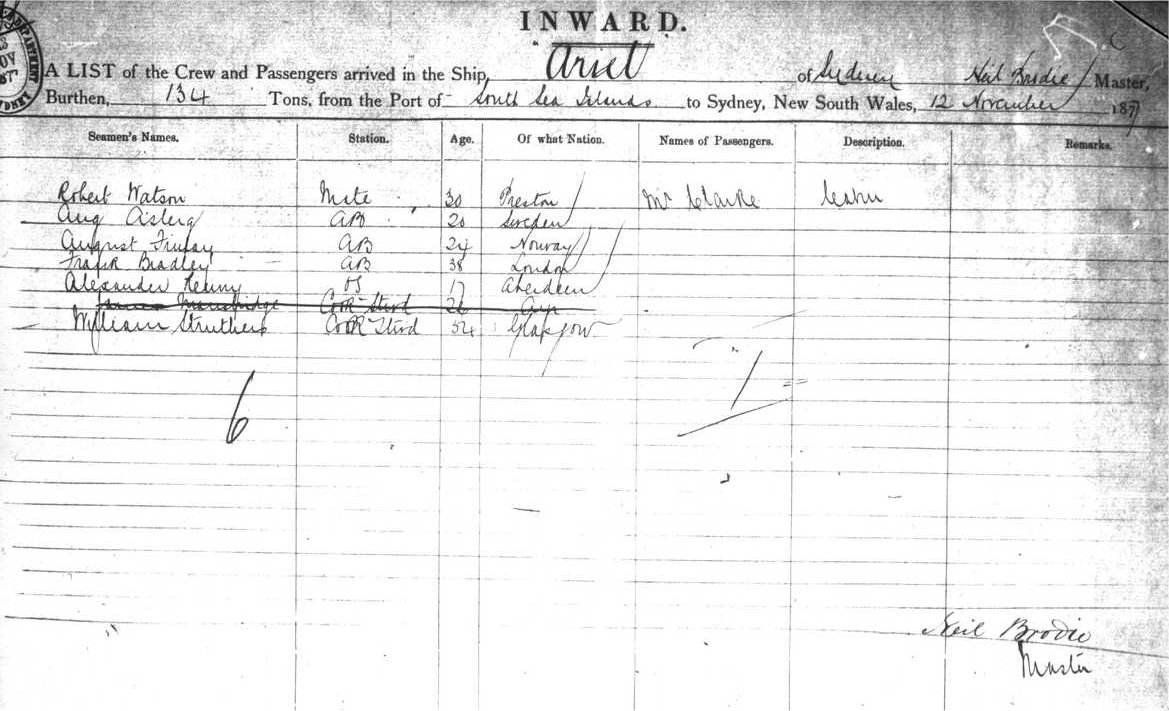 INWARD.
A LIST of the Crew and Passengers arrived in the Ship, "Ariel of Sydney Neil Brodie Master,
Burthen, 134 Tons, from the Port of South Sea Islands to Sydney, New South Wales, 12 November 187
Seamen's Names. Station. Age. Of what Nation. Names of Passengers. Description. Remarks.
Robert Watson Mate 30 Preston Mr Clarke Cabin
Aug AB 20 Sweden
August AB 24 Norway
Frank Bradley AB 38 London
Alexander Kenny OS 17 Aberdeen
Cook Stwd 26 Ayr
William Struthers Cook Stwd 54 Glasgow
6 1
Neil Brodie
Master